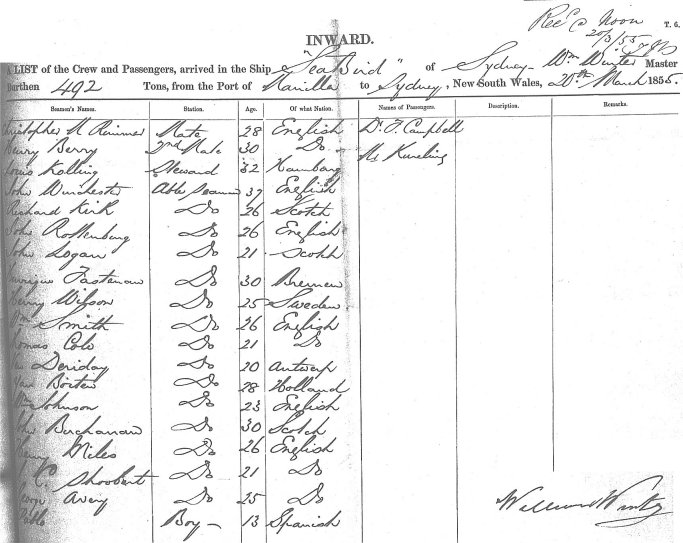 Recd Noon
20/3/55
T. 6.
INWARD.
A LIST of the Crew and Passengers, arrived in the Ship "Sea Bird" of Sydney Wm Winter Master
Burthen 492 Tons, from the Port of Manilla to Sydney, New South Wales, 20th March 1855.
Seamen's Names. Station. Age. Of what Nation. Names of Passengers. Description. Remarks.
Mate 28 English Dr. J. Campbell
Henry Berry 2nd Mate 30 Do Mr
Louis Kolling Steward 32 Hamburg
John Winchester Able Seaman 37 English
Richard Kirk Do 26 Scotch
John Rottenburg Do 26 English
John Logan Do 21 Scotch
Do 30 Bremen
Henry Wilson Do 25 Sweden
Wm Smith Do 26 English
Thomas Cole Do 21 Do
Deriday Do 20 Antwerp
Do 28 Holland
Wm Johnson Do 23 English
John Buchanan Do 30 Scotch
Henry Miles Do 26 English
C. Shoobert Do 21 Do
George Avery Do 25 Do
Pablo Boy 13 Spanish
William Winter